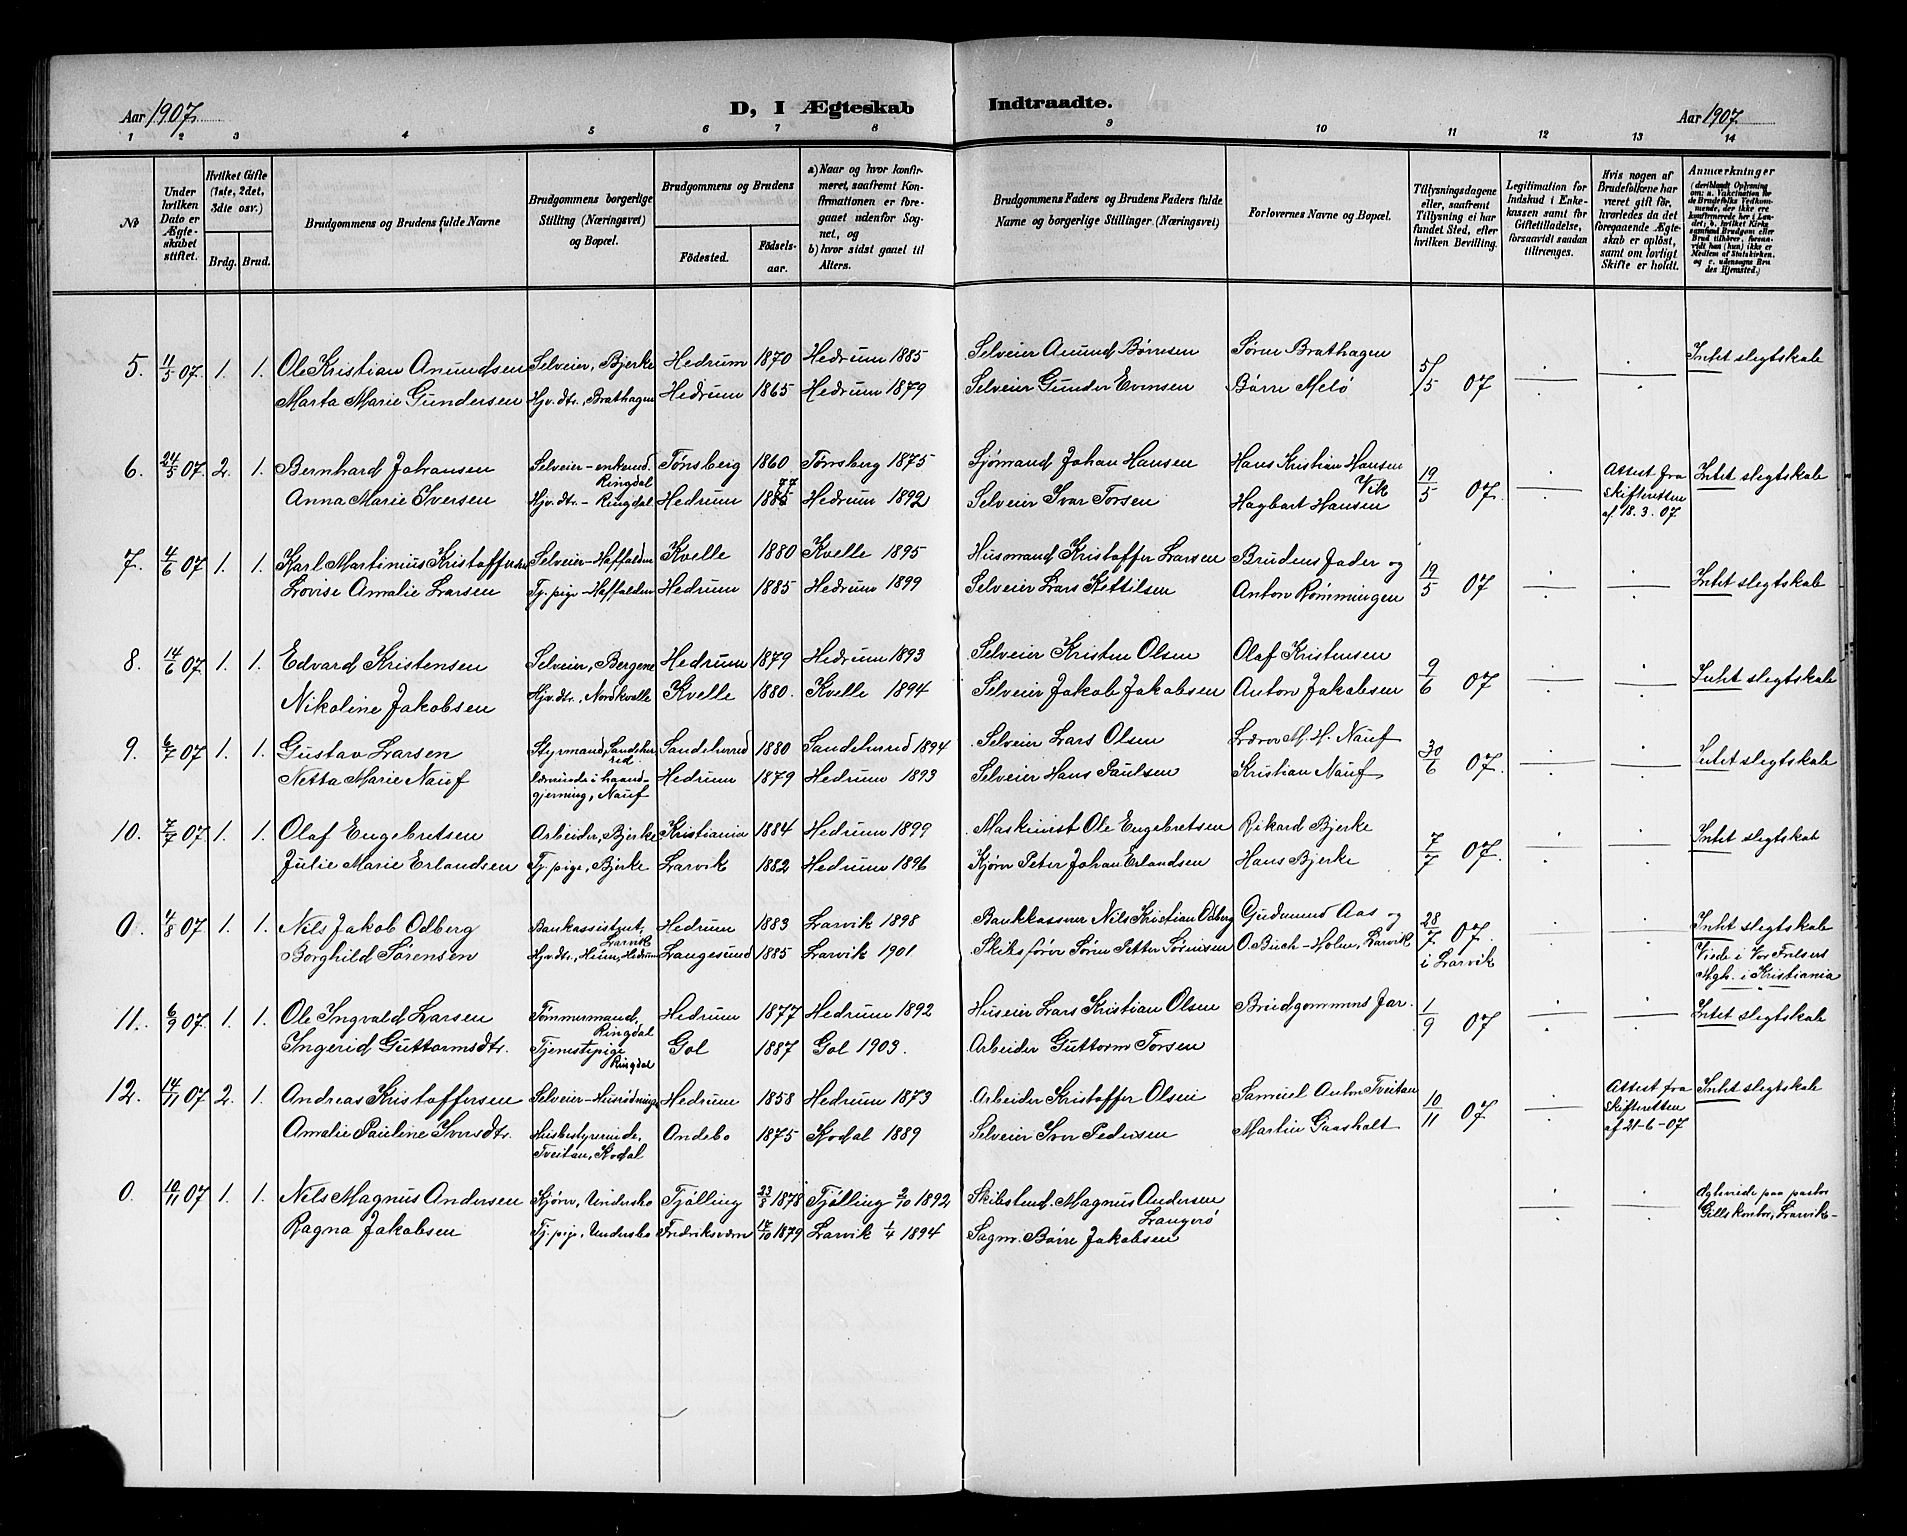 Aar 1907. D, I Ægteskab Indtraadte. Aar 1907.
1 2 3 4 5 6 7 8 9 10 11 12 13 14
№
Under hvilken Dato er Ægteskabet stiftet.
Hvilket Gifte (1ste, 2det, 3die osv.)
Brdg. Brud.
Brudgommens og Brudens fulde Navne
Brudgommens borgerlige Stilling (Næringsvei) og Bopæl.
Brudgommens og Brudens
Fødested. Fødselsaar.
a) Naar og hvor konfirmeret, saafremt Konfirmationen er foregaaet udenfor Sognet, og
b) hvor sidst gaaet til Alters.
Brudgommens Faders og Brudens Faders fulde Navne og borgerlige Stillinger (Næringsvei)
Forlovernes Navne og Bopæl.
Tillysningsdagene eller, saafremt Tillysning ei har fundet Sted, efter hvilken Bevilling.
Legitimation for Indskud i Enkekassen samt for Giftetilladelse, forsaavidt saadan tiltrænges.
Hvis nogen af Brudefolkene har været gift før, hvorledes da det foregaaende Ægteskab er opløst, samt om lovligt Skifte er holdt.
Anmærkninger
(deriblandt Oplysning om: a. Vakcination for de Brudefolks Vedkommende, der ikke ere konfirmerede her i Landet; b. hvilket Kirkesamfund Brudgom eller Brud tilhører, forsaavidt han (hun) ikke er Medlem af Statskirken. og c. udensogns Brudes Hjemsted.)
5. 11/5 07. 1. 1. Ole Kristian Amundsen Selveier, Bjerke Hedrum 1870 Hedrum 1885 Selveier Amund Børresen Søren Brathagen 5/5 07 Intet slegtskab
Marta Marie Gundersen Hjv.dtr., Brathagen Hedrum 1865 Hedrum 1879 Selveier Gunder Evensen Børre Melø
6. 24/5 07. 2. 1. Bernhard Johansen Selveier-enkemd. Ringdal Tønsberg 1860 Tønsberg 1875 Sjømand Johan Hansen Hans Kristian Hansen Vik 19/5 07. Attest fra Skifteretten af 18.3.07. Intet slegtskab
Anna Marie Iversen Hjv.dtr. - Ringdal Hedrum 1877 Hedrum 1892 Selveier Ivar Torsen Hagbart Hansen
7. 4/6 07 1. 1. Karl Martinius Kristoffersen Selveier-Haffalden Kvelle 1880 Kvelle 1895 Husmand Kristoffer Larsen Brudens fader og 19/5 07 Intet slegtskab
Lovise Amalie Larsen Tj. pige-Haffalden Hedrum 1885 Hedrum 1899 Selveier Lars Kittilsen Anton Rømmingen
8. 14/6 07. 1. 1. Edvard Kristensen Selveier, Bergene Hedrum 1879 Hedrum 1893 Selveier Kristen Olsen Olaf Kristensen 9/6 07 Intet slegtskab
Nikoline Jakobsen Hjv.dtr., Nordkvelle Kvelle 1880. Kvelle 1894 Selveier Jakob Jakobsen Anton Jakobsen
9. 6/7 07 1. 1. Gustav Larsen Styrmand, Sandeherred Sandeherred 1880 Sandeherred 1894 Selveier Lars Olsen Lærer M. H. Nauf 30/6 07. Intet slegtskab
Netta Marie Nauf lærerinde i haandgjerning, Nauf Hedrum 1879 Hedrum 1893 Selveier Hans Paulsen Kristian Nauf
10. 7/7 07 1. 1. Olaf Engebretsen Arbeider, Bjerke Kristiania 1884 Hedrum 1899 Maskinist Ole Engebretsen Rikard Bjerke 7/7 07. Intet slegtskab
Julie Marie Erlandsen Tj. pige, Bjerke Larvik 1882 Hedrum 1896 Kjører Peter Johan Erlandsen Hans Bjerke
0. 4/8 07 1. 1. Nils Jakob Odberg Bankassistent, Larvik Hedrum 1883 Larvik 1898 Bankkasserer Nils Kristian Odberg Gudmund Aas og 28/7 07. i Larvik Intet slegtskab
Borghild Sørensen Hjv.dtr., Heim, Hedrum Langesund 1885 Larvik 1901 Skibsfører Søren Petter Sørensen O. Buch-Holm, Larvik. Viede i Vor Frelsers Mgh. i Kristiania
11. 6/9 07. 1. 1. Ole Ingvald Larsen Tømmermand, Ringdal Hedrum 1877 Hedrum 1892 Huseier Lars Kristian Olsen Brudgommens far. 1/9 07 Intet slegtskab
Ingerid Guttormsdtr. Tjenestepige Ringdal Gol 1887 Gol 1903. Arbeider Guttorm Torsen
12. 14/11 07 2. 1. Andreas Kristoffersen Selveier- Hedrum 1858 Hedrum 1873 Arbeider Kristoffer Olsen Samuel Anton Tveitan 10/11 07 Attest fra Skifteretten af 21-6-07 Intet slegtskab
Amalie Pauline Iversdtr. Husbestyrerinde, Tveitan, Kodal Andebo 1875 Kodal 1889 Selveier Iver Pedersen Martin Gaasholt
0. 10/11 07 1. 1. Nils Magnus Andersen Kjører, Undersbo Tjølling 23/8 1878 Tjølling 2/10 1892 Skibstmd. Magnus Andersen Langerø Agtevirede paa pastor Gills kontor, Larvik-
Ragna Jakobsen Tj. pige, Undersbo Fredriksværn 14/10 1879 Larvik 1/4 1894 Sagm. Børre Jakobsen